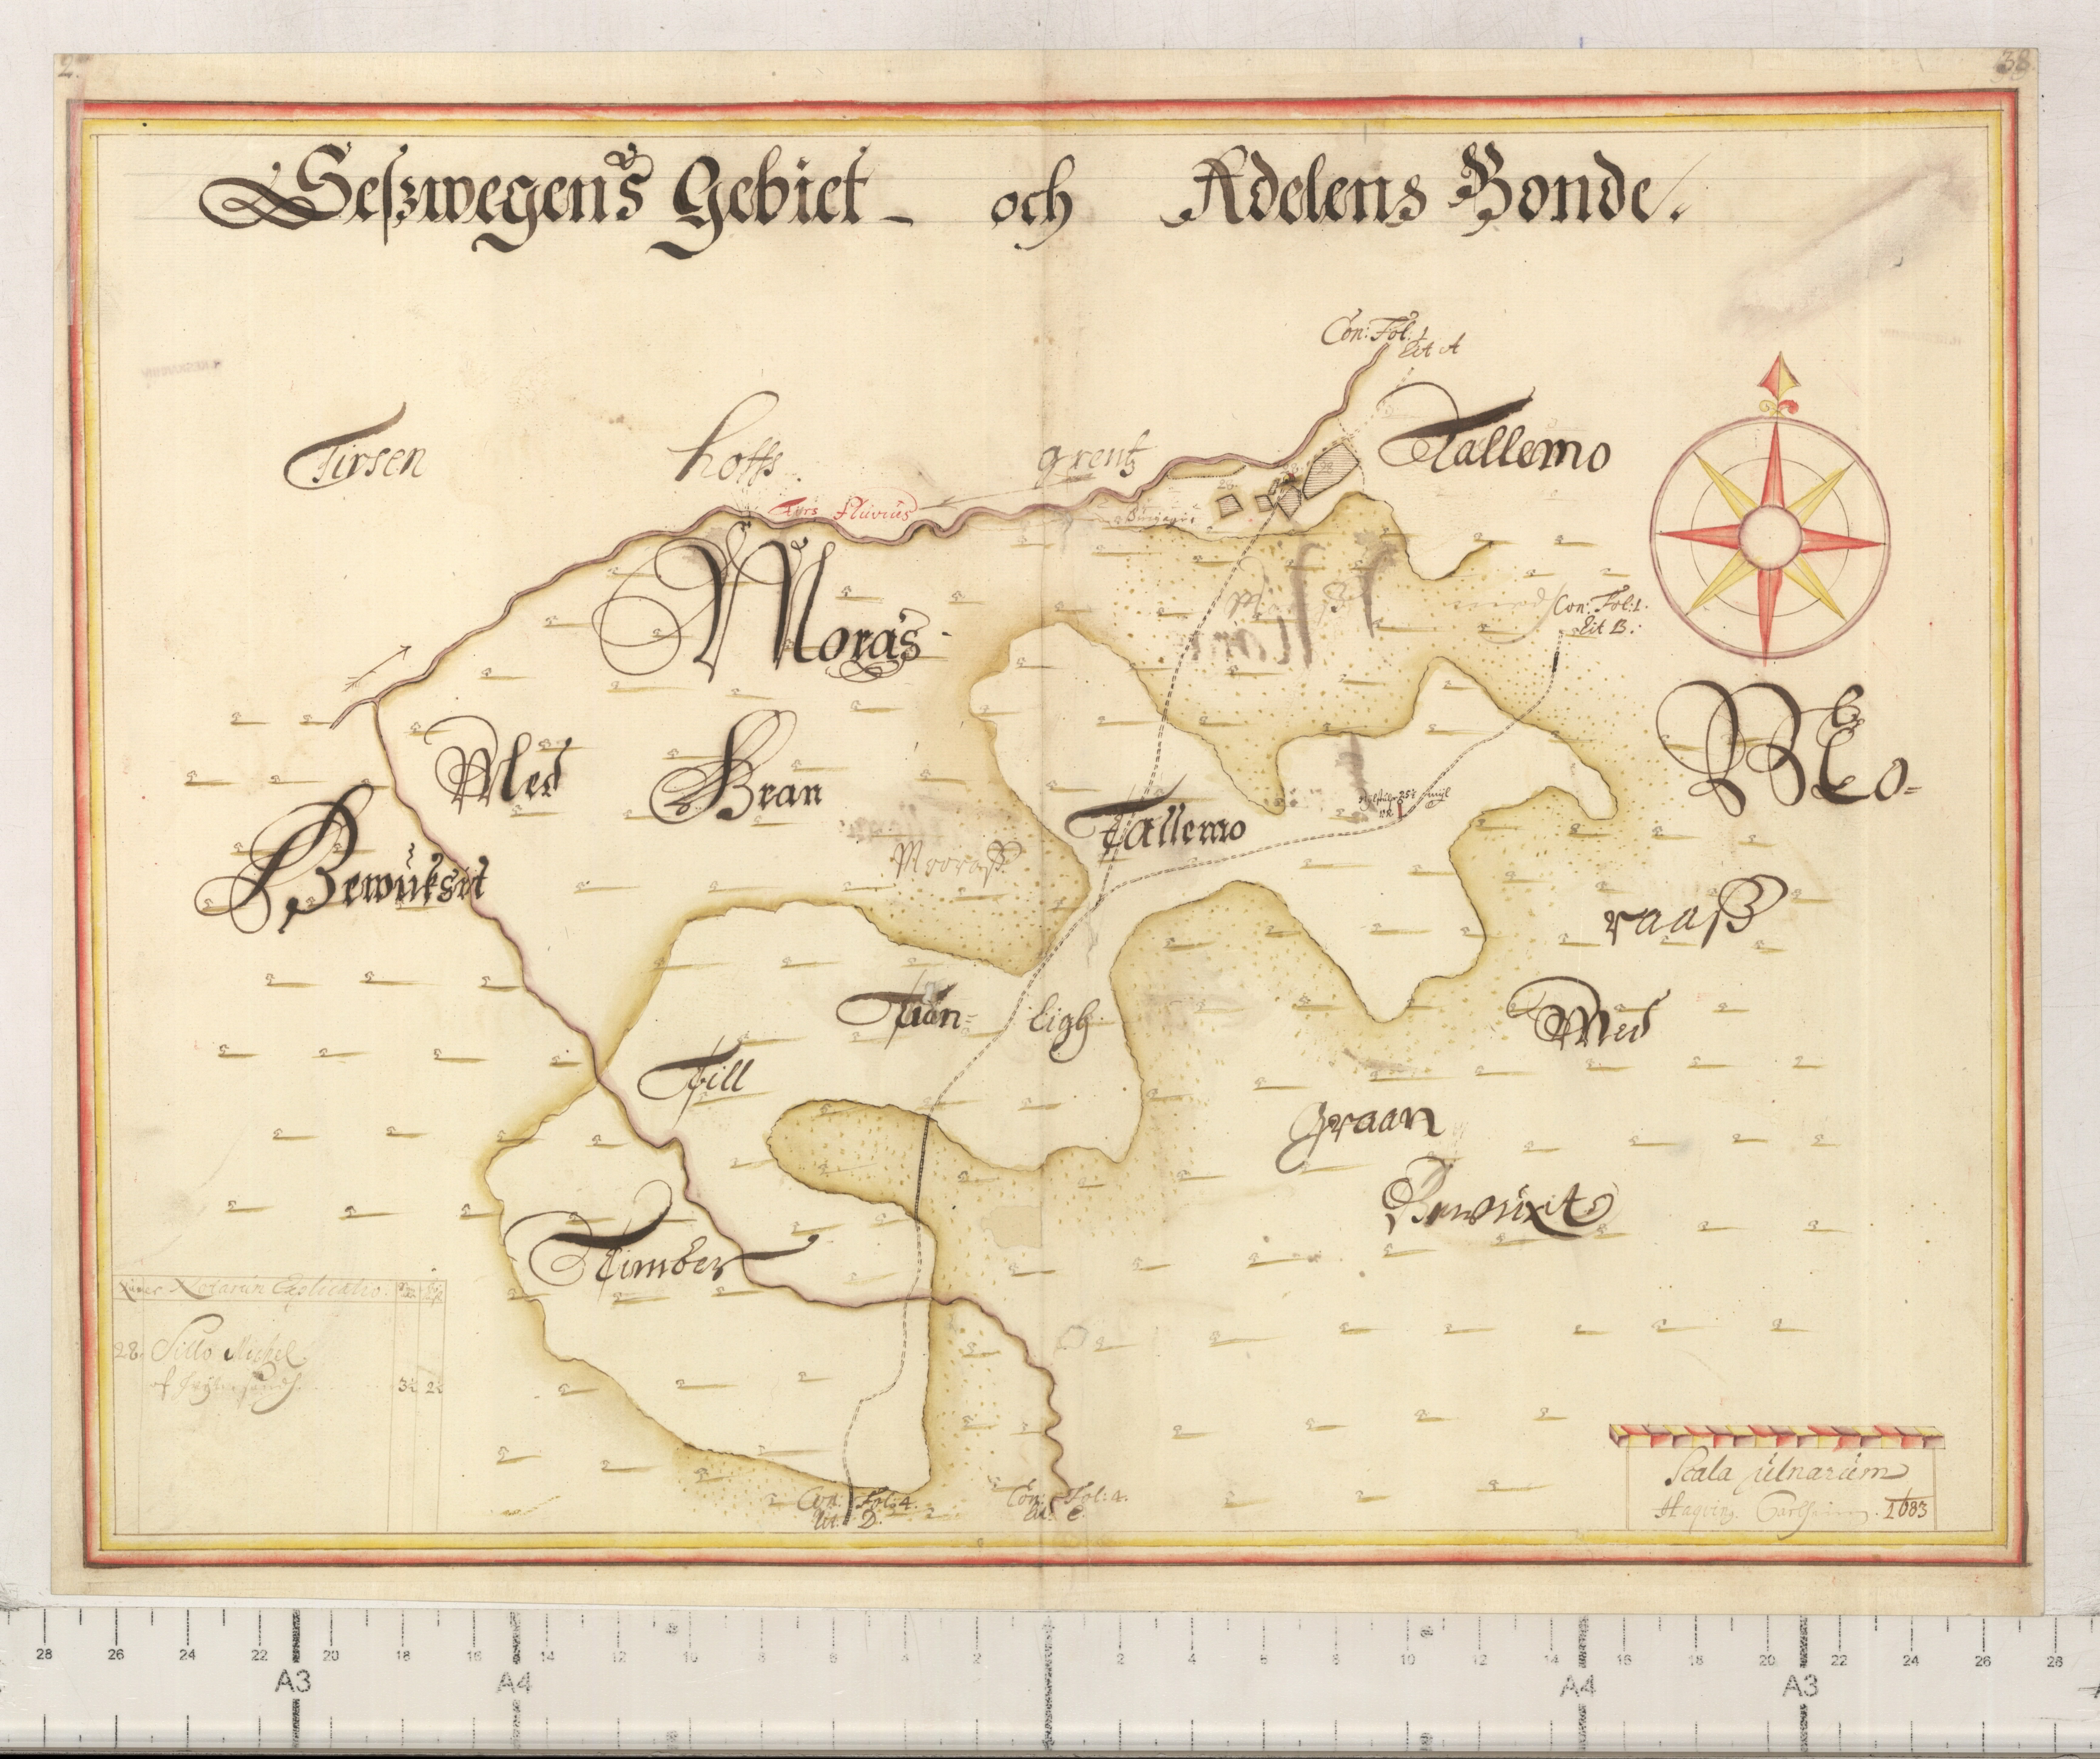 2.
38
Seszwegens Gebiet - och Adelens Bonde.
Con: Fol: 1
Lit A
Tirsen hoffs grentz
Tallemo
Tyrs Fluvius
Moras
Con: Fol: 1.
Lit B.
Med Bran
Mo=
Bewuksit
Mooraß
Tallemo
raaß
Tiän= ligh
Med
Till
Graan
Bewuxit
Timber
Notarum Explicatio.
28. Sillo Michel
Scala Ulnarum
1683
Con: Fol: 4.
Lit: D.
Con: Fol: 4.
Lit: C.
28 26 24 22 20 18 14 12 10 8 6 4 2 2 4 6 8 10 12 14 16 18 20 22 24 26 28
A3 A4 A4 A3